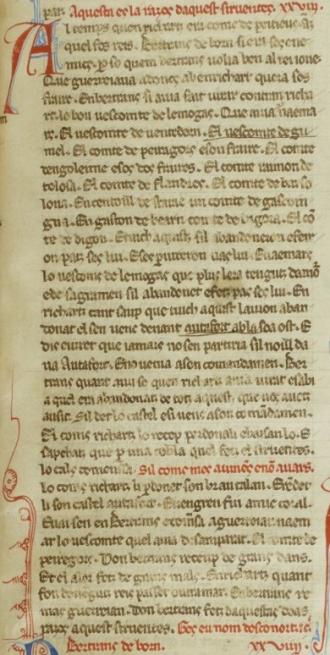 Aquesta es la razos daquest siruentes. XXVIII.
Al temps quen richartz era coms de peitieus anz
quel fos reis. Bertrans de born si era sos ene
mics. p so quen bertrans uolia ben al rei ioue
Que guerreiaua adoncs ab en richart quera sos
fraire. En bertrans si auia fait uirar contran richa
rt. lo bon uescomte de lemogas. Que auia naema
rs. El uescomte de uentedorn. El uescomte de gu
mel. El comte de peiragors e son fraire. El comte
dengoleime e sos dos fraires. El comte raimon de
tolosa. El comte de flandres. El comte de barsa
lona. En centoill de un comte de gascoin
gna. En gaston de bearn comte de bigora. El co
te de digon. E tuich aquistz sil abandoneron e feir
on patz ses lui. E se periureron uas lui. En aemars
lo uescoms de lemogas que plus lera tengutz damor
e de sagramen sil abandonet e fetz patz ses lui. En
richartz cant saup que tuich aquist lauion aban
donat el sen uenc denant autafort ab la soa ost. E
dis e iuret que iamais no sen partiria sil noill da
ua autafort. E no uenia a son comandamen. Ber
trans quant auzi so quen richartz auia iurat e sabi
a quel era abandonatz de totz aquestz que uos auetz
ausit. Sil det lo castel e si uenc a son comandamen.
El coms richartz lo receup perdonan li e baisan lo. E
sapchatz que p una cobla quel fetz el siruentes.
lo cals comensa. Sil coms mes auinens e non auars.
Lo coms richartz li perdonet son brau talan. E rendet
li son castel autafort. E uengren fin amic coral.
E uai sen en bertrans e comensa a guerreiar naem
ar lo uescomte quel auia desamparat. El comte de
peiregors. Don bertrans receup de grans dans.
Et el a lor fetz de grans mals. En richartz quant
fon deuengutz reis passet outra mar. En bertrans re
mas guerreian. Don bertrans fetz daquestas doas
razos aquest siruentes. Ges eu nom desconort. re.
Bertrans de born. XXVIIII.